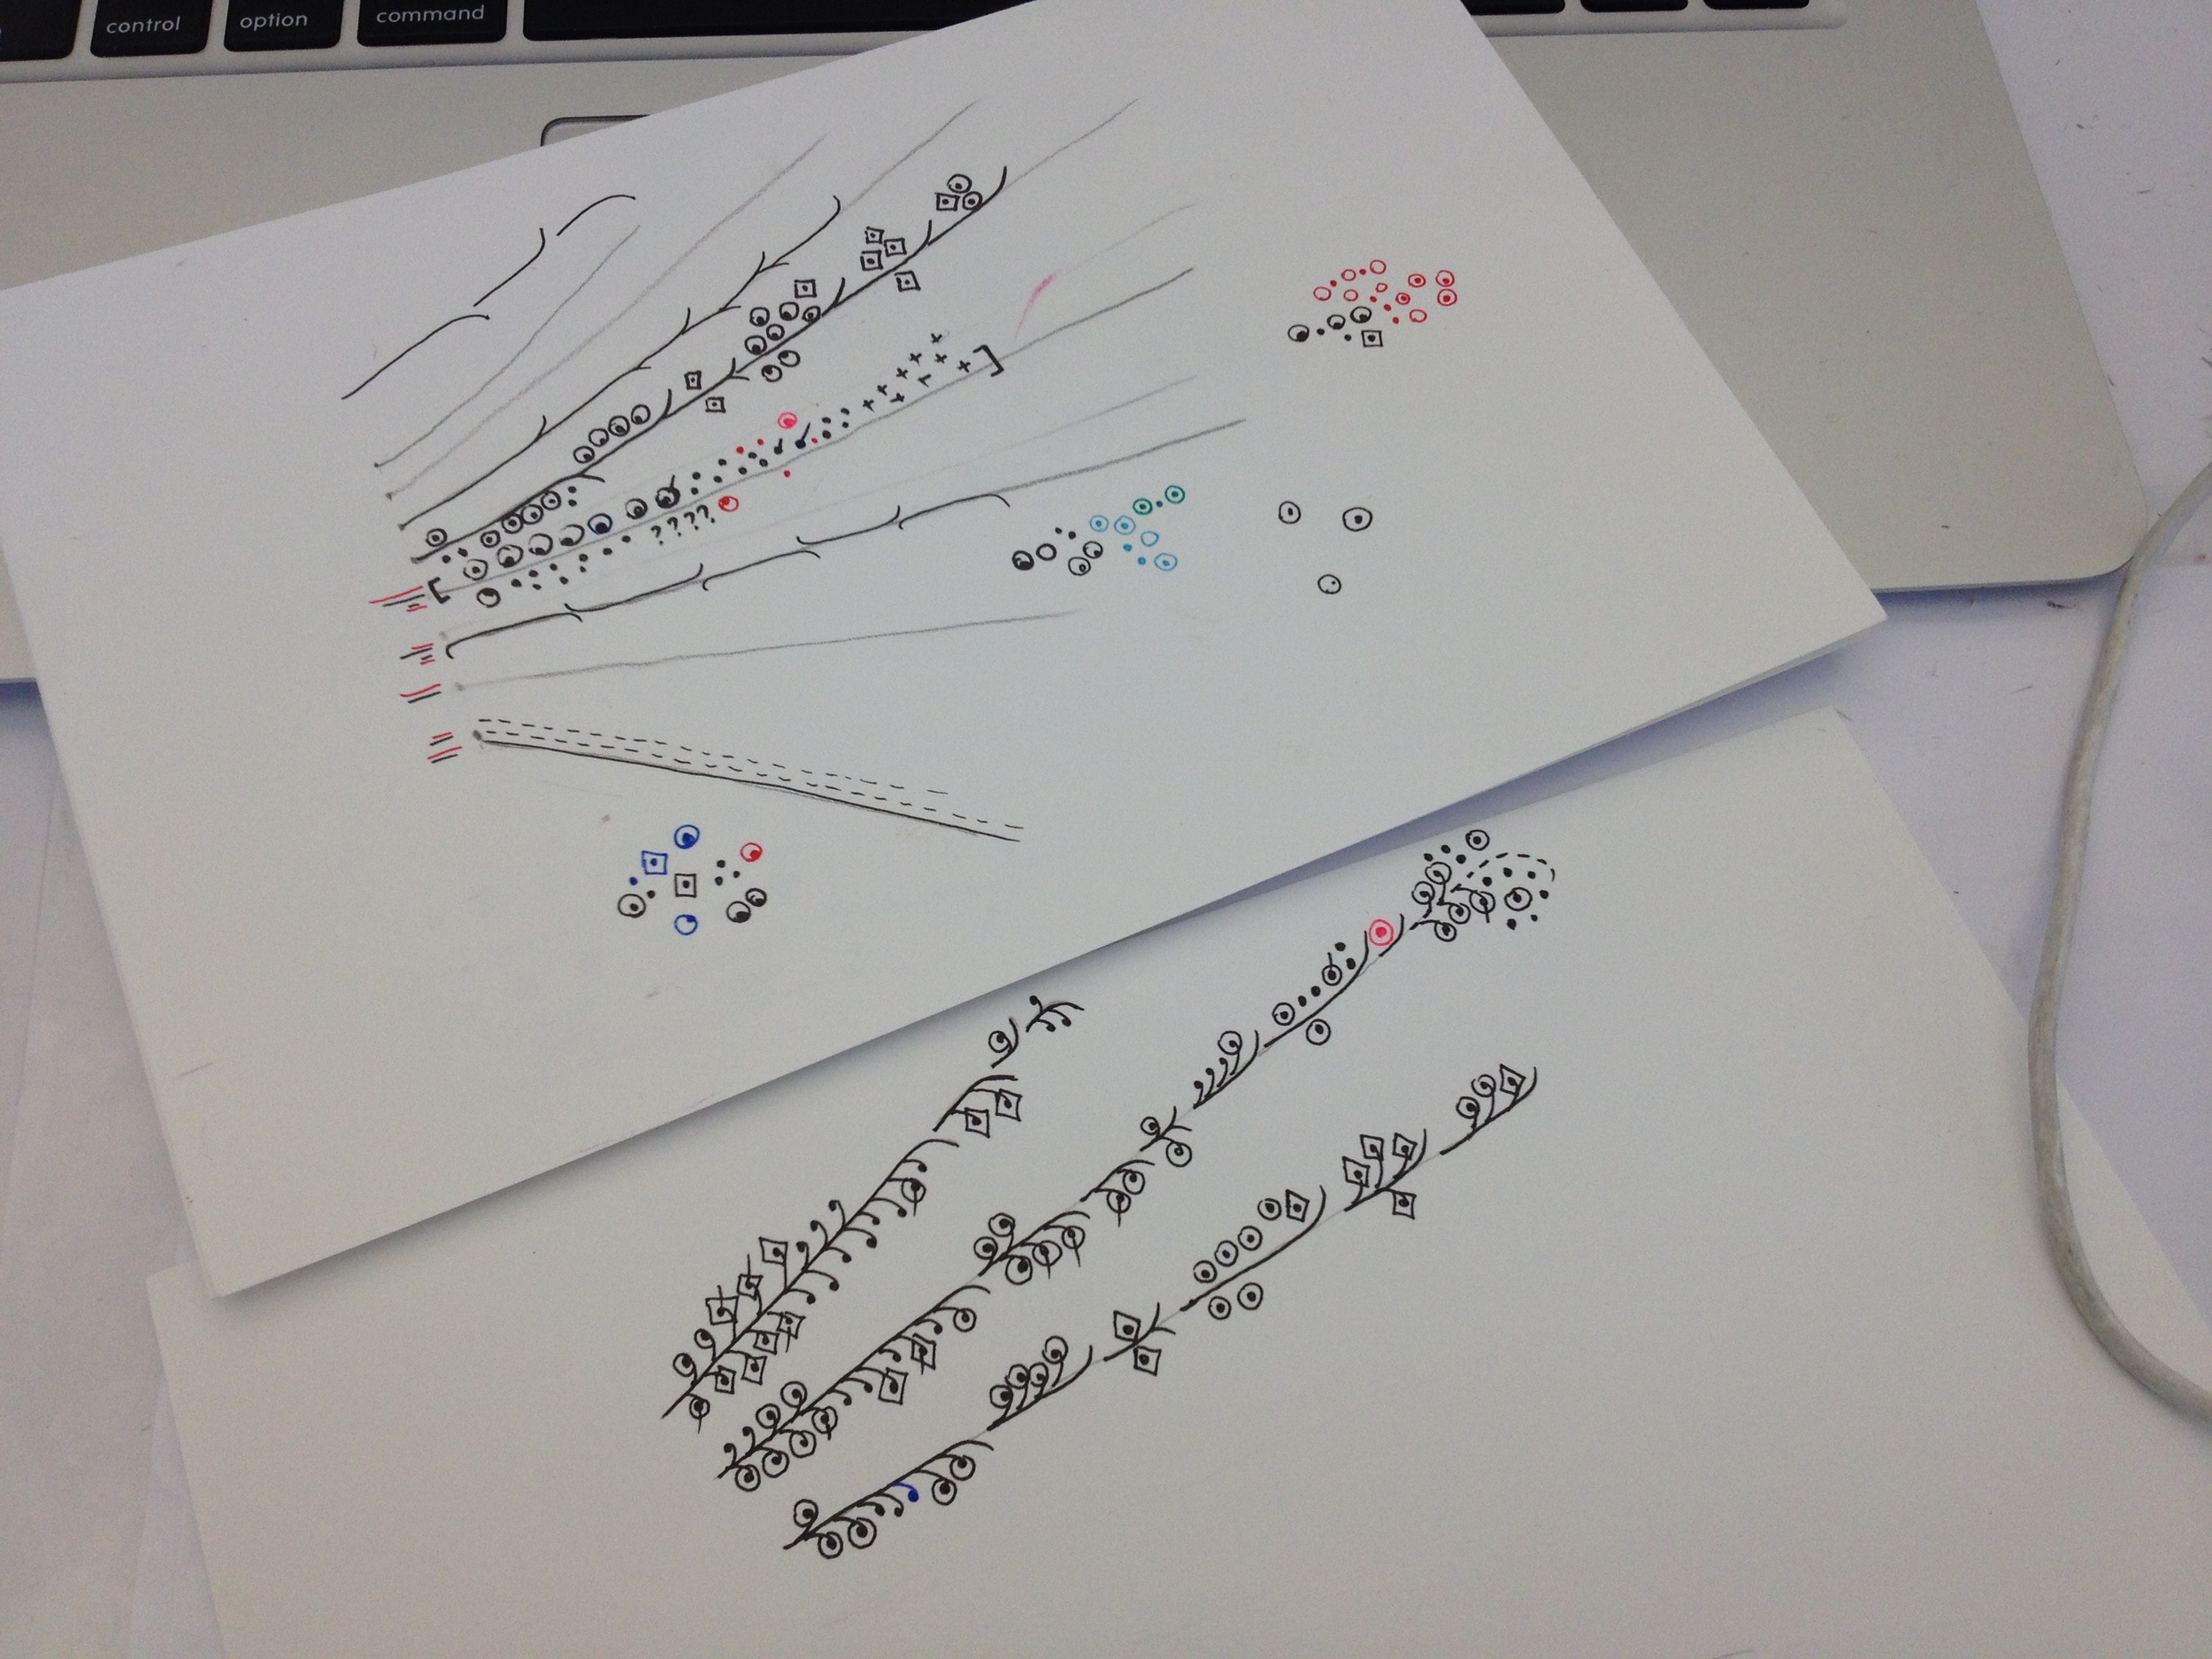 control option command
????